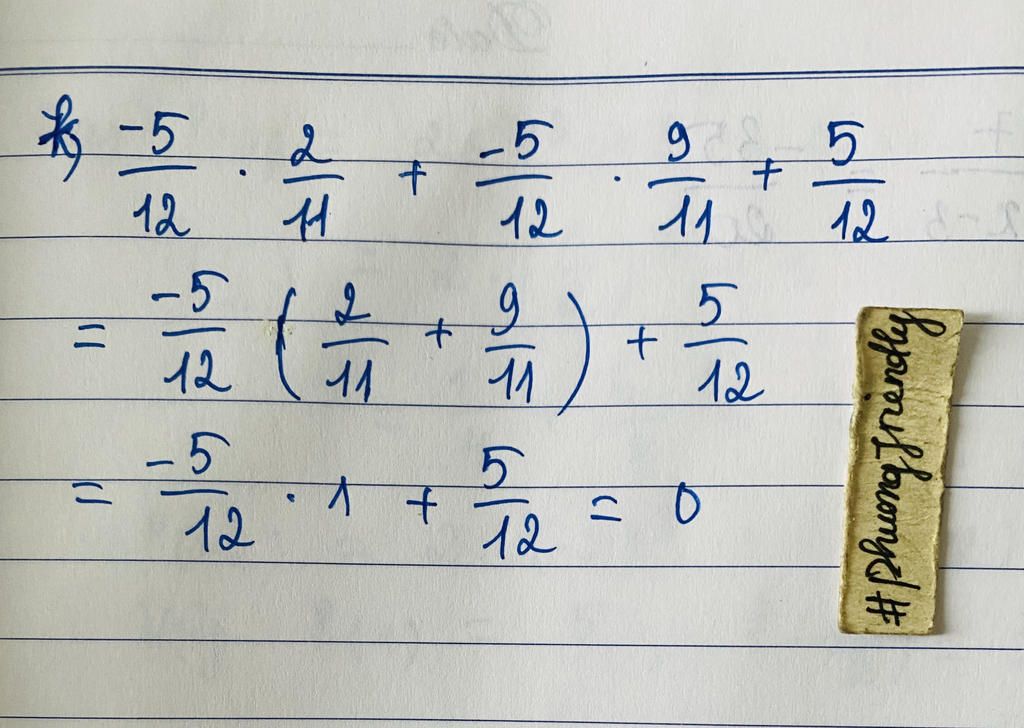 k, -5/12 . 2/11 + -5/12 . 9/11 + 5/12
= -5/12 ( 2/11 + 9/11 ) + 5/12
= -5/12 . 1 + 5/12 = 0
#PhuongFriendly